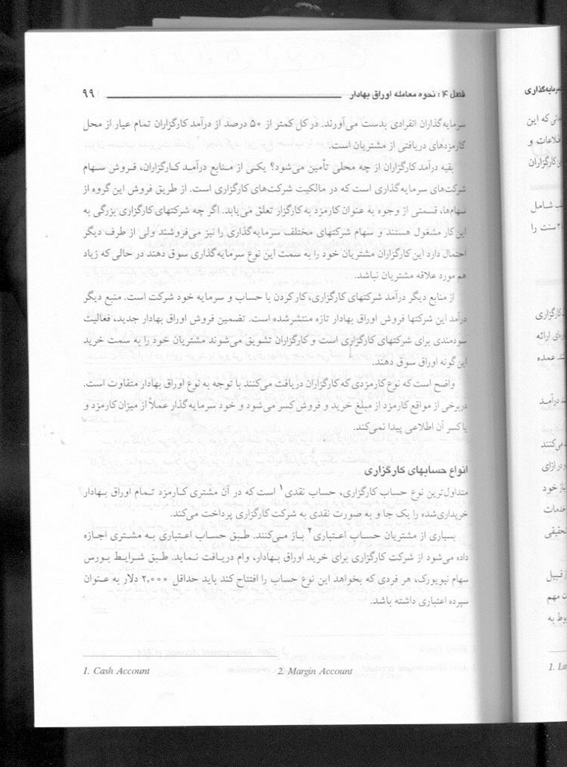 فصل ۴: نحوه معامله اوراق بهادار ۹۹
سرمایه‌گذاران انفرادی بدست می‌آورند. در کل کمتر از ۵۰ درصد از درآمد کارگزاران تمام عیار از محل
کارمزدهای دریافتی از مشتریان است.
بقیه درآمد کارگزاران از چه محلی تأمین می‌شود؟ یکی از منابع درآمد کارگزاران، فروش سهام
شرکت‌های سرمایه‌گذاری است که در مالکیت شرکت‌های کارگزاری است. از طریق فروش این گروه از
سهام‌ها، قسمتی از وجوه به عنوان کارمزد به کارگزار تعلق می‌یابد. اگر چه شرکتهای کارگزاری بزرگی به
این کار مشغول هستند و سهام شرکتهای مختلف سرمایه‌گذاری را نیز می‌فروشند ولی از طرف دیگر
احتمال دارد این کارگزاران مشتریان خود را به سمت این نوع سرمایه‌گذاری سوق دهند در حالی که زیاد
هم مورد علاقه مشتریان نباشد.
از منابع دیگر درآمد شرکتهای کارگزاری، کار کردن با حساب و سرمایه خود شرکت است. منبع دیگر
درآمد این شرکتها فروش اوراق بهادار تازه منتشرشده است. تضمین فروش اوراق بهادار جدید، فعالیت
سودمندی برای شرکتهای کارگزاری است و کارگزاران تشویق می‌شوند مشتریان خود را به سمت خرید
این‌گونه اوراق سوق دهند.
واضح است که نوع کارمزدی که کارگزاران دریافت می‌کنند با توجه به نوع اوراق بهادار متفاوت است.
در برخی از مواقع کارمزد از مبلغ خرید و فروش کسر می‌شود و خود سرمایه‌گذار عملاً از میزان کارمزد و
یا کسر آن اطلاعی پیدا نمی‌کند.
انواع حسابهای کارگزاری
متداول‌ترین نوع حساب کارگزاری، حساب نقدی۱ است که در آن مشتری کارمزد تمام اوراق بهادار
خریداری‌شده را یک جا و به صورت نقدی به شرکت کارگزاری پرداخت می‌کند.
بسیاری از مشتریان حساب اعتباری۲ باز می‌کنند. طبق حساب اعتباری به مشتری اجازه
داده می‌شود از شرکت کارگزاری برای خرید اوراق بهادار، وام دریافت نماید. طبق شرایط بورس
سهام نیویورک، هر فردی که بخواهد این نوع حساب را افتتاح کند باید حداقل ۲,۰۰۰ دلار به عنوان
سپرده اعتباری داشته باشد.
1. Cash Account 2. Margin Account